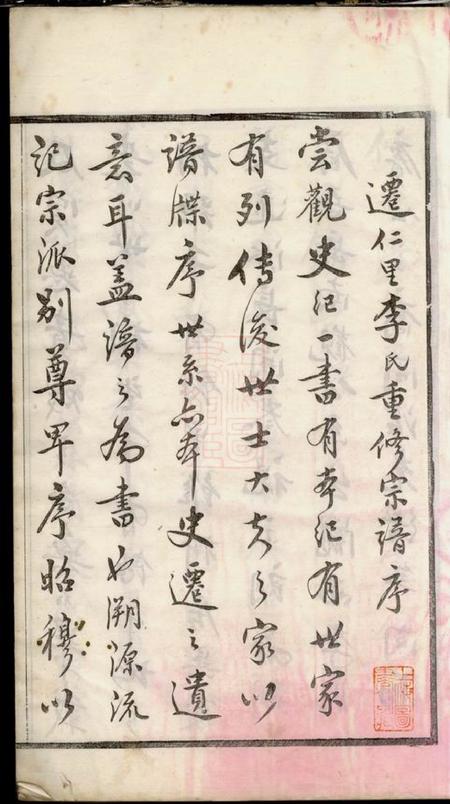 遷仁里李氏重修宗譜序
嘗觀史記一書有本紀有世家
有列傳後世士大夫之家以
譜牒序世系亦本史遷之遺
意耳蓋譜之為書也溯源流
記宗派別尊卑序昭穆以